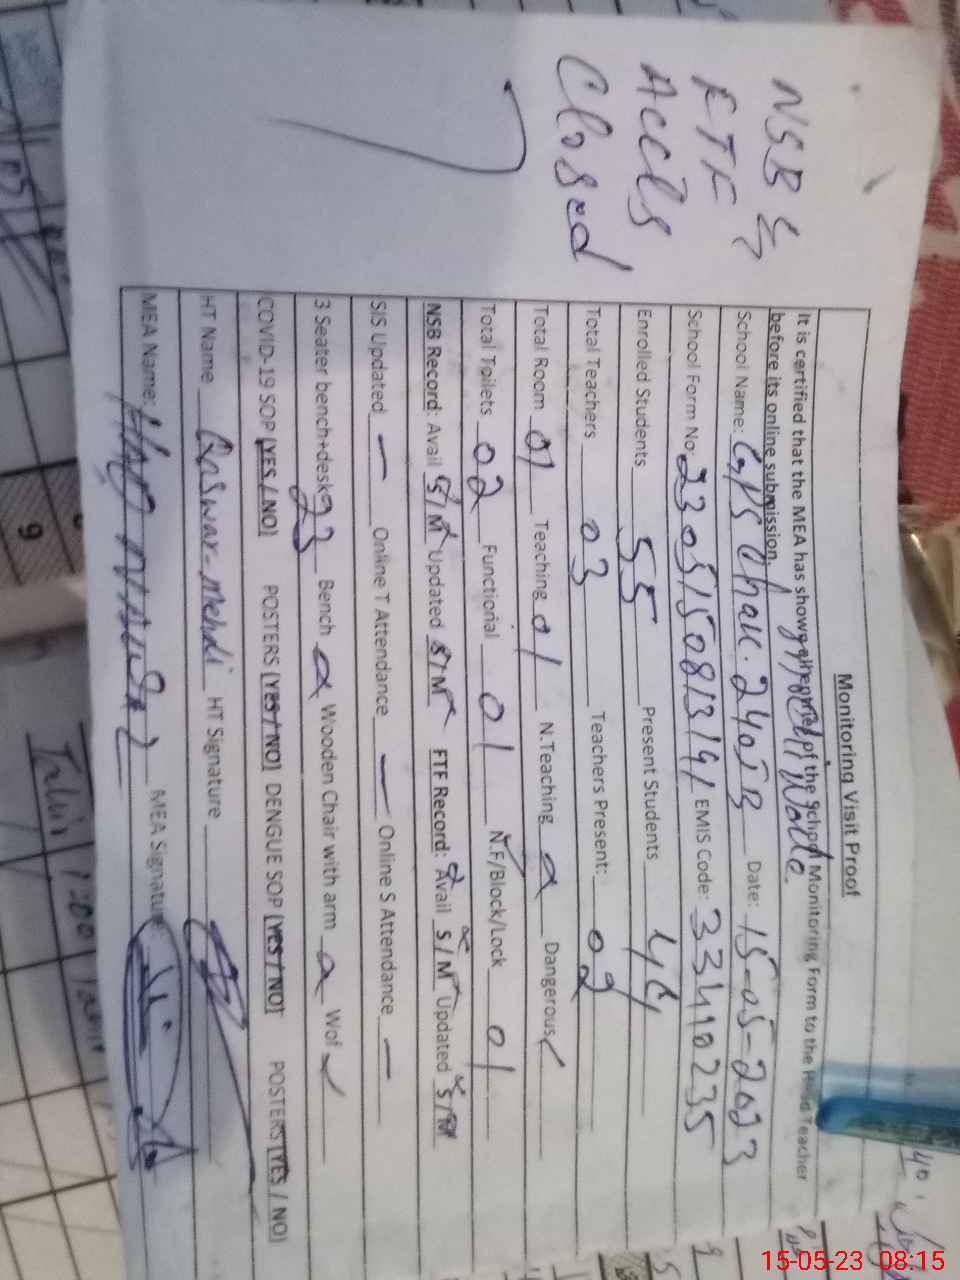 NSB &
FTF
Accts
Closed
Monitoring Visit Proof
It is certified that the MEA has shown the of the School Monitoring Form to the Head Teacher
before its online submission.
School Name: GPS Chak. 240 JB Date: 15-05-2023
School Form No. 2305150813191 EMIS Code: 33410235
Enrolled Students 55 Present Students 44
Total Teachers 03 Teachers Present: 02
Total Room 01 Teaching 01 N.Teaching Dangerous
Total Toilets 02 Functional 01 N.F/Block/Lock 01
NSB Record: Avail S/M Updated S/M FTF Record: Avail S/M Updated S/M
SIS Updated — Online T Attendance — Online S Attendance —
3 Seater bench+desk 23 Bench Wooden Chair with arm Wof
COVID-19 SOP [YES / NO] POSTERS [YES / NO] DENGUE SOP [YES / NO] POSTERS [YES / NO]
HT Name Mehdi HT Signature
MEA Name: MEA Signature
9
15-05-23 08:15